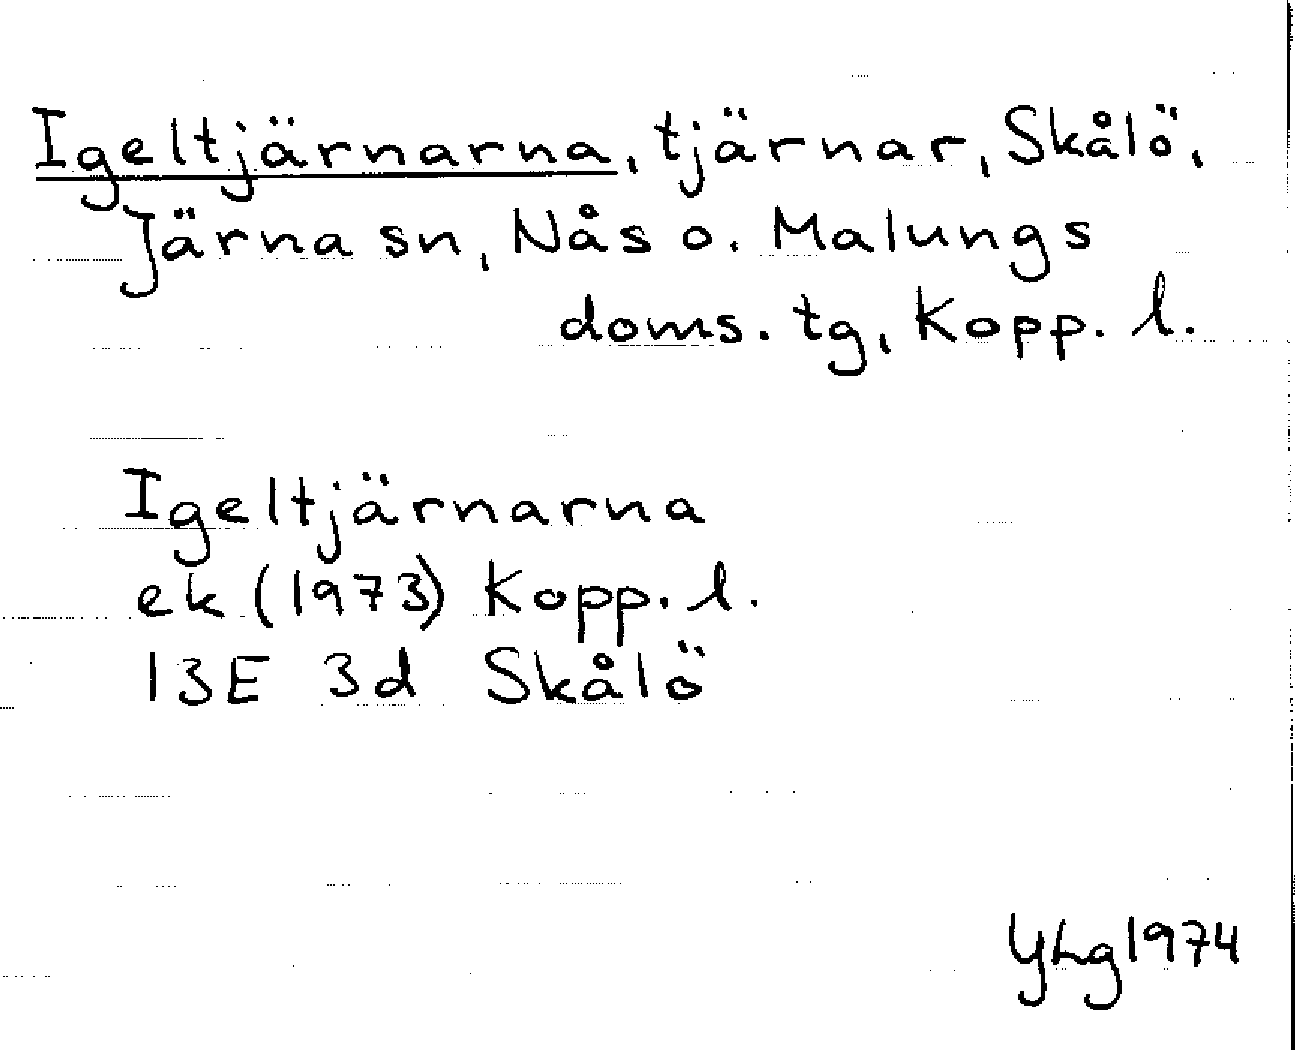 Igeltjärnarna, tjärnar, Skålö,
Järna sn, Nås o. Malungs
doms. tg, Kopp. l.
Igeltjärnarna
ek (1973) Kopp. l.
13E 3d Skålö
YLg 1974